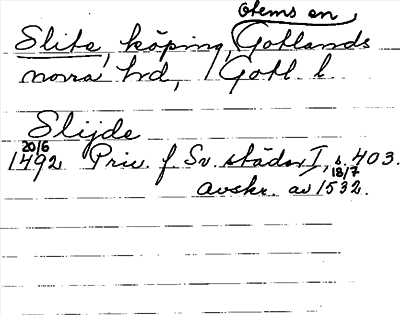 Othems sn
Slite, köping, Gotlands
norra hd, Gotl. l.
Slijde
1492 20/6 Priv. f. Sv. städer I, s. 403.
avskr. av 18/7 1532.